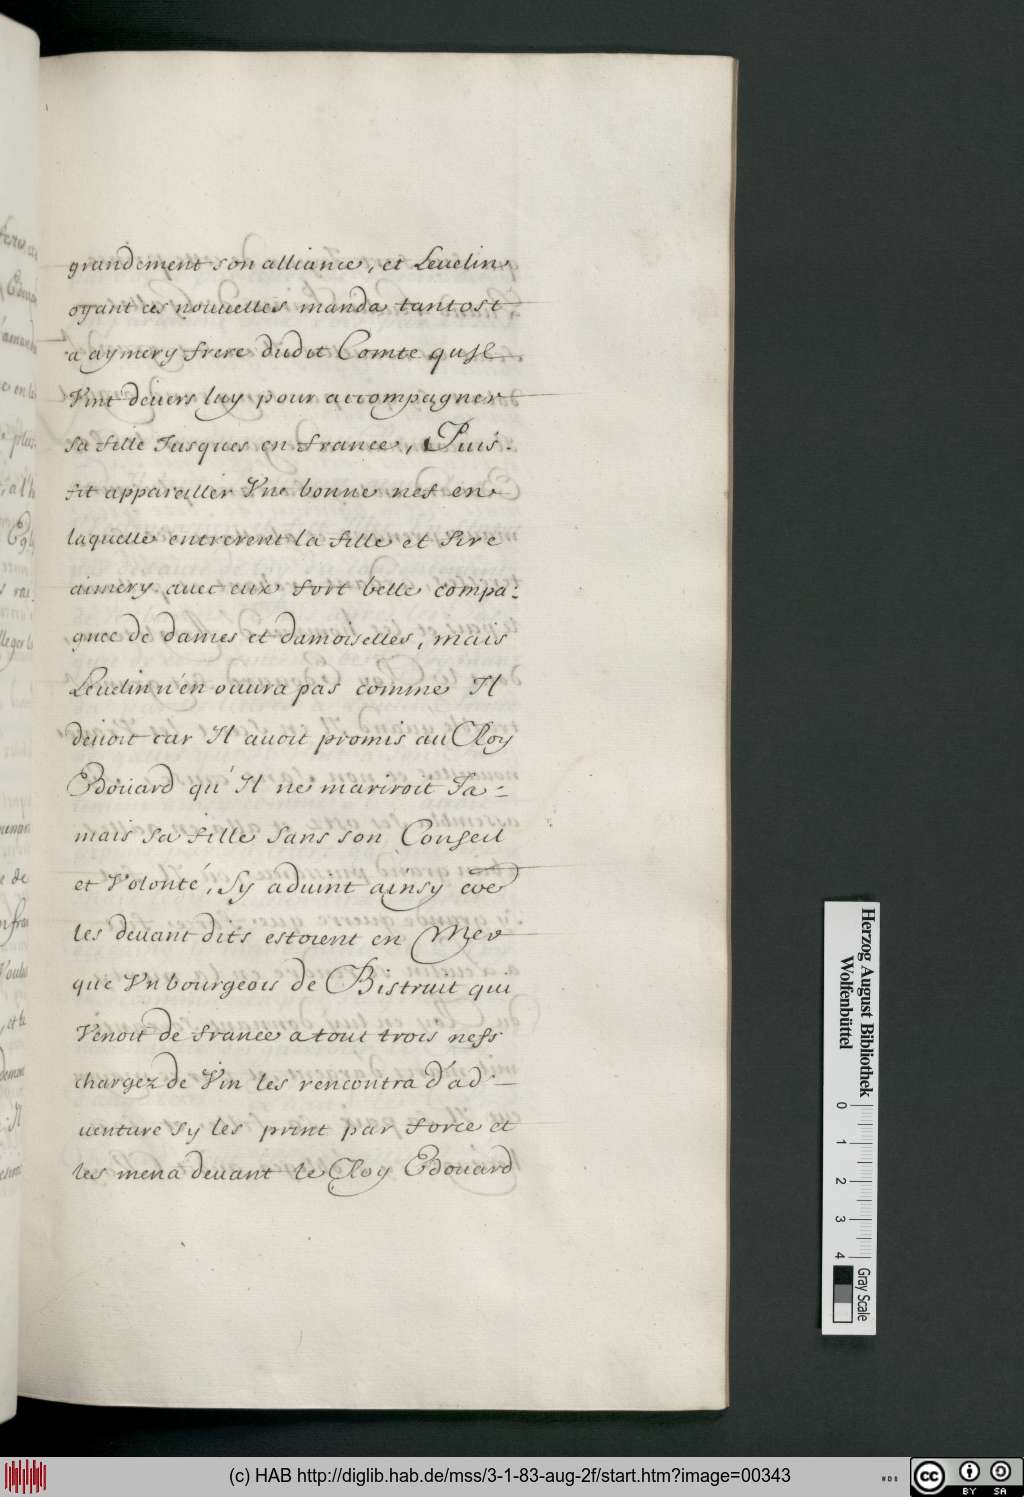 grandement son alliance, et Leuelin
oyant ces nouuelles manda tantost
a aymery frere dudit Comte qu'Jl
Vint deuers luy pour accompagner
sa fille Jusques en france, Puis
fit appareiller Vne bonne nef en
laquelle entrerent la fille et Sire
aimery auec eux fort belle compa-
gnee de dames et damoiselles, mais
Leuelin n'en ouura pas comme Il
deuoit car Il auoit promis au Roy
Edoüard qu'Il ne mariroit Ja-
mais sa fille sans son Conseil
et Volonté, Sy aduint ainsy que
les deuant dits estoient en Mer
que Vn bourgeois de Bistruit qui
Venoit de france a tout trois nefs
chargez de Vin les rencontra d'ad-
uenture sy les print par force et
les mena deuant le Roy Edouard
Herzog August Bibliothek
Wolfenbüttel
0 1 2 3 4
Gray Scale
(c) HAB http://diglib.hab.de/mss/3-1-83-aug-2f/start.htm?image=00343
cc BY SA